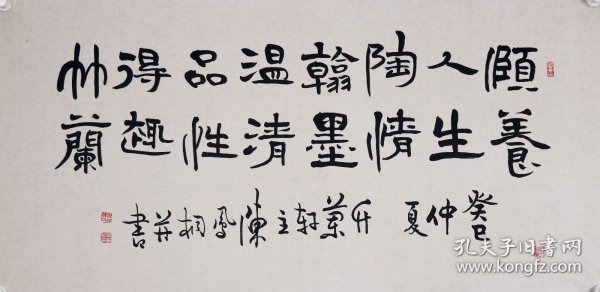 頤養
人生
陶情
翰墨
温清
品性
得趣
竹蘭
癸巳仲夏竹蘭軒主陳鳳桐并書
孔夫子旧书网
www.kongfz.com